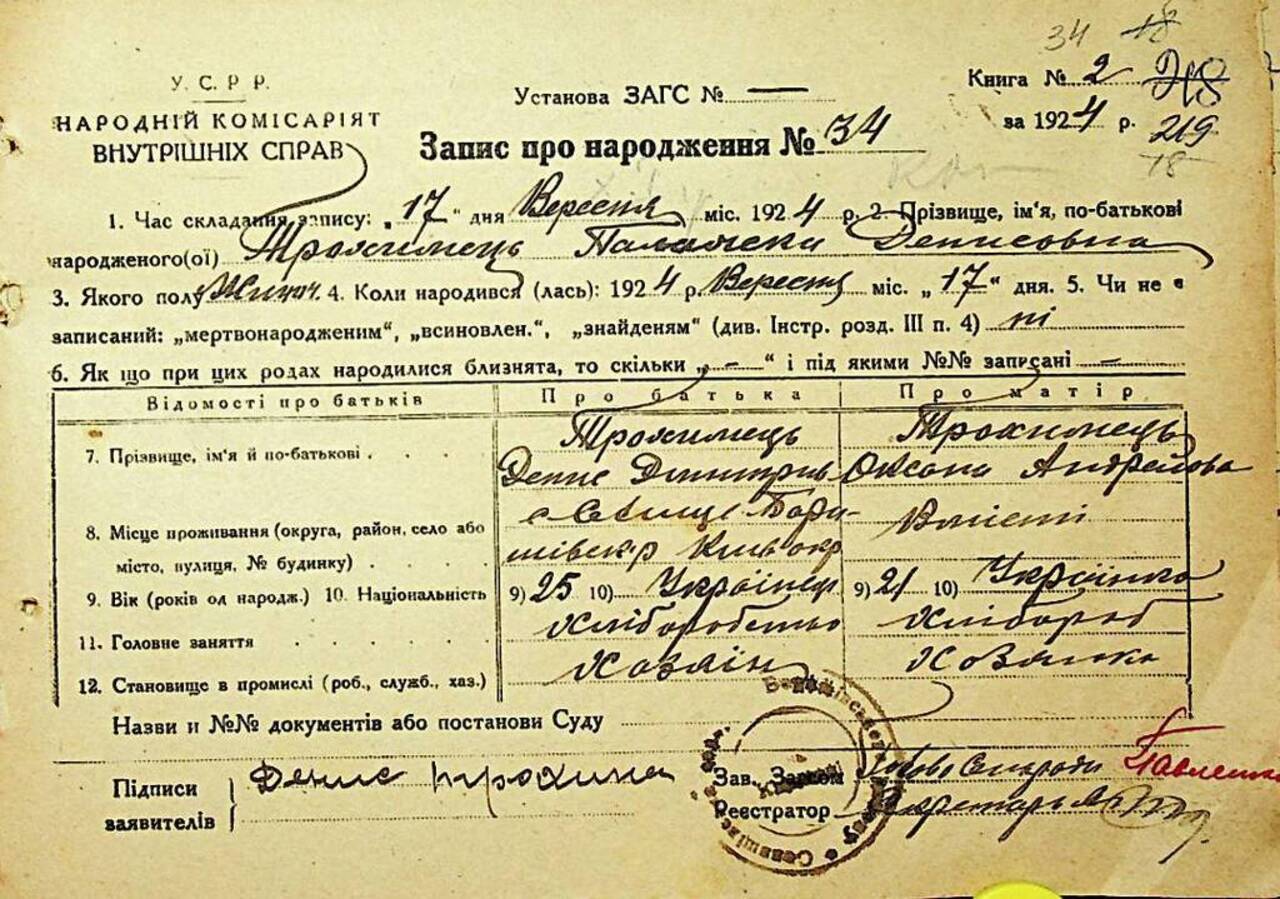 34 18
У. С. Р Р.
НАРОДНІЙ КОМІСАРІЯТ
ВНУТРІШНІХ СПРАВ
Установа ЗАГС № —
Запис про народження № 34
Книга № 2 218
за 1924 р. 219
18
1. Час складання запису: „17“ дня Вересня міс. 1924 р. 2. Прізвище, ім'я, по-батькові
народженого(ої) Трохимець Палажка Денисовна
3. Якого полу Жіноч. 4. Коли народився (лась): 1924 р. Вересня міс. „17“ дня. 5. Чи не є
записаний: „мертвонародженим“, „всиновлен.“, „знайденям“ (див. Інстр. розд. III п. 4) ні
6. Як що при цих родах народилися близнята, то скільки „—“ і під якими №№ записані —
Відомості про батьків Про батька Про матір
7. Прізвище, ім'я й по-батькові Трохимець Трохимець
Денис Дмитрів Оксана Андрейова
8. Місце проживання (округа, район, село або
місто, вулиця, № будинку)
с Севище Бори- Вмісті
шівск р Київ окр
9. Вік (років од народж.) 10. Національність 9) 25 10) Українец 9) 21 10) Українка
11. Головне заняття Хліборобство Хлібороб
12. Становище в промислі (роб., служб., хаз.) Хозяїн Хозяйка
Назви и №№ документів або постанови Суду
Підписи
заявителів
Денис Трохима
Зав. Загсом Голова Сільради Павленко
Реєстратор Секретарь